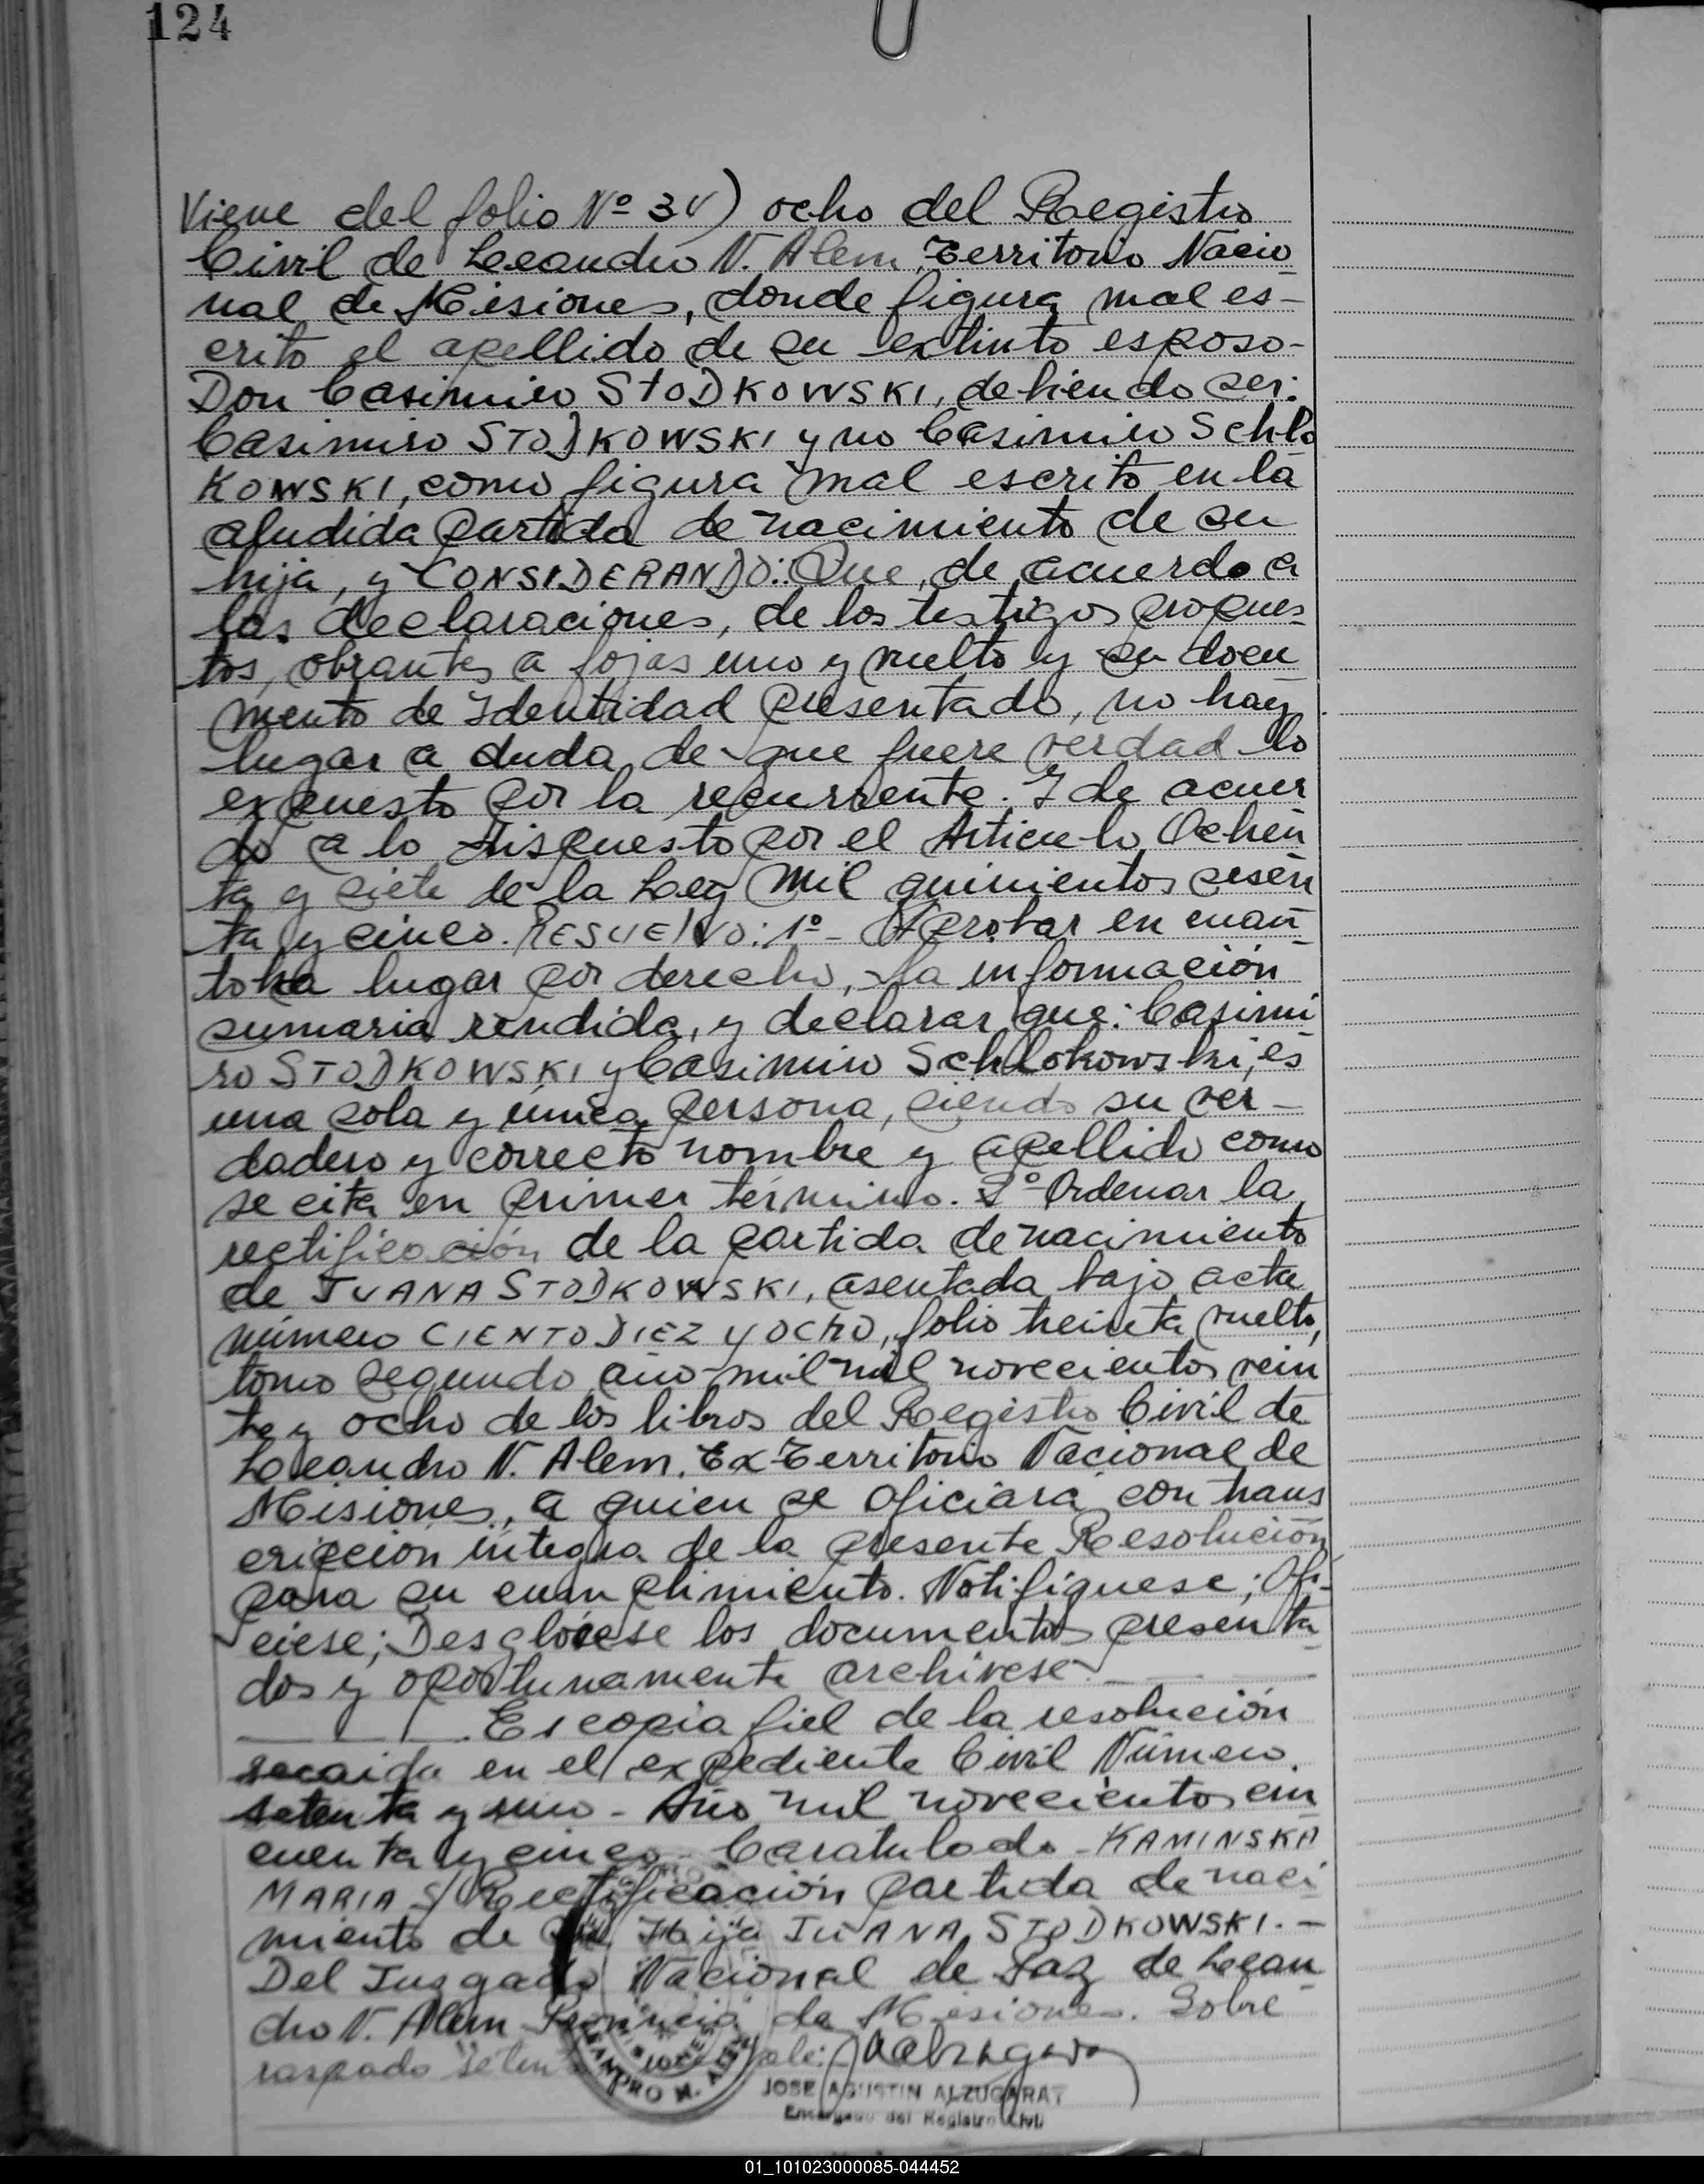 124
Viene del folio Nº 3V) ocho del Registro
Civil de Leandro N. Alem, Territorio Nacio
nal de Misiones, donde figura mal es-
crito el apellido de su extinto esposo-
Don Casimiro StODKOWSKI, debiendo ser:
Casimiro STODKOWSKI y no Casimiro Schlo
KOWSKI, como figura mal escrito en la
aludida partida de nacimiento de su
hija, y CONSIDERANDO: Que, de acuerdo a
las declaraciones, de los testigos propues
tos, obrantes a fojas uno y vuelto y su docu
mento de Identidad presentado, no hay
lugar a duda de que fuere verdad lo
expuesto por la recurrente. I de acuer
do a lo dispuesto por el Articulo Ochen
ta y siete de la Ley Mil quinientos sesen
ta y cinco. RESUELVO: 1º- Aprobar en cuan
to ha lugar por derecho, la información
sumaria rendida, y declarar que: Casimi
ro STODKOWSKI y Casimiro Schlokowski, es
una sola y única persona, siendo su ver-
dadero y correcto nombre y apellido como
se cita en primer término. 2º- Ordenar la
rectificación de la partida de nacimiento
de JUANA STODKOWSKI, asentada bajo acta
número CIENTO DIEZ y OCHO, folio treinta vuelto,
tomo segundo año mil mil novecientos vein
te y ocho de los libros del Registro Civil de
Leandro N. Alem. Ex-Territorio Nacional de
Misiones, a quien se oficiará con trans
cripción integra de la presente Resolución
para su cumplimiento. Notifíquese; Ofi-
ciese; Desglócese los documentos presenta
dos y oportunamente archívese.
Es copia fiel de la resolución
recaida en el expediente Civil Número
setenta y uno - Año mil novecientos cin
cuenta y cinco - Caratulado - KAMINSKA
MARIA S/ Rectificación partida de naci
miento de su Hija JUANA STODKOWSKI. -
Del Juzgado Nacional de Paz de Lean
dro N. Alem Provincia de Misiones. Sobre
raspado vale:
JOSE AGUSTIN ALZUGARAT
Encargado del Registro Civil
01_101023000085-044452